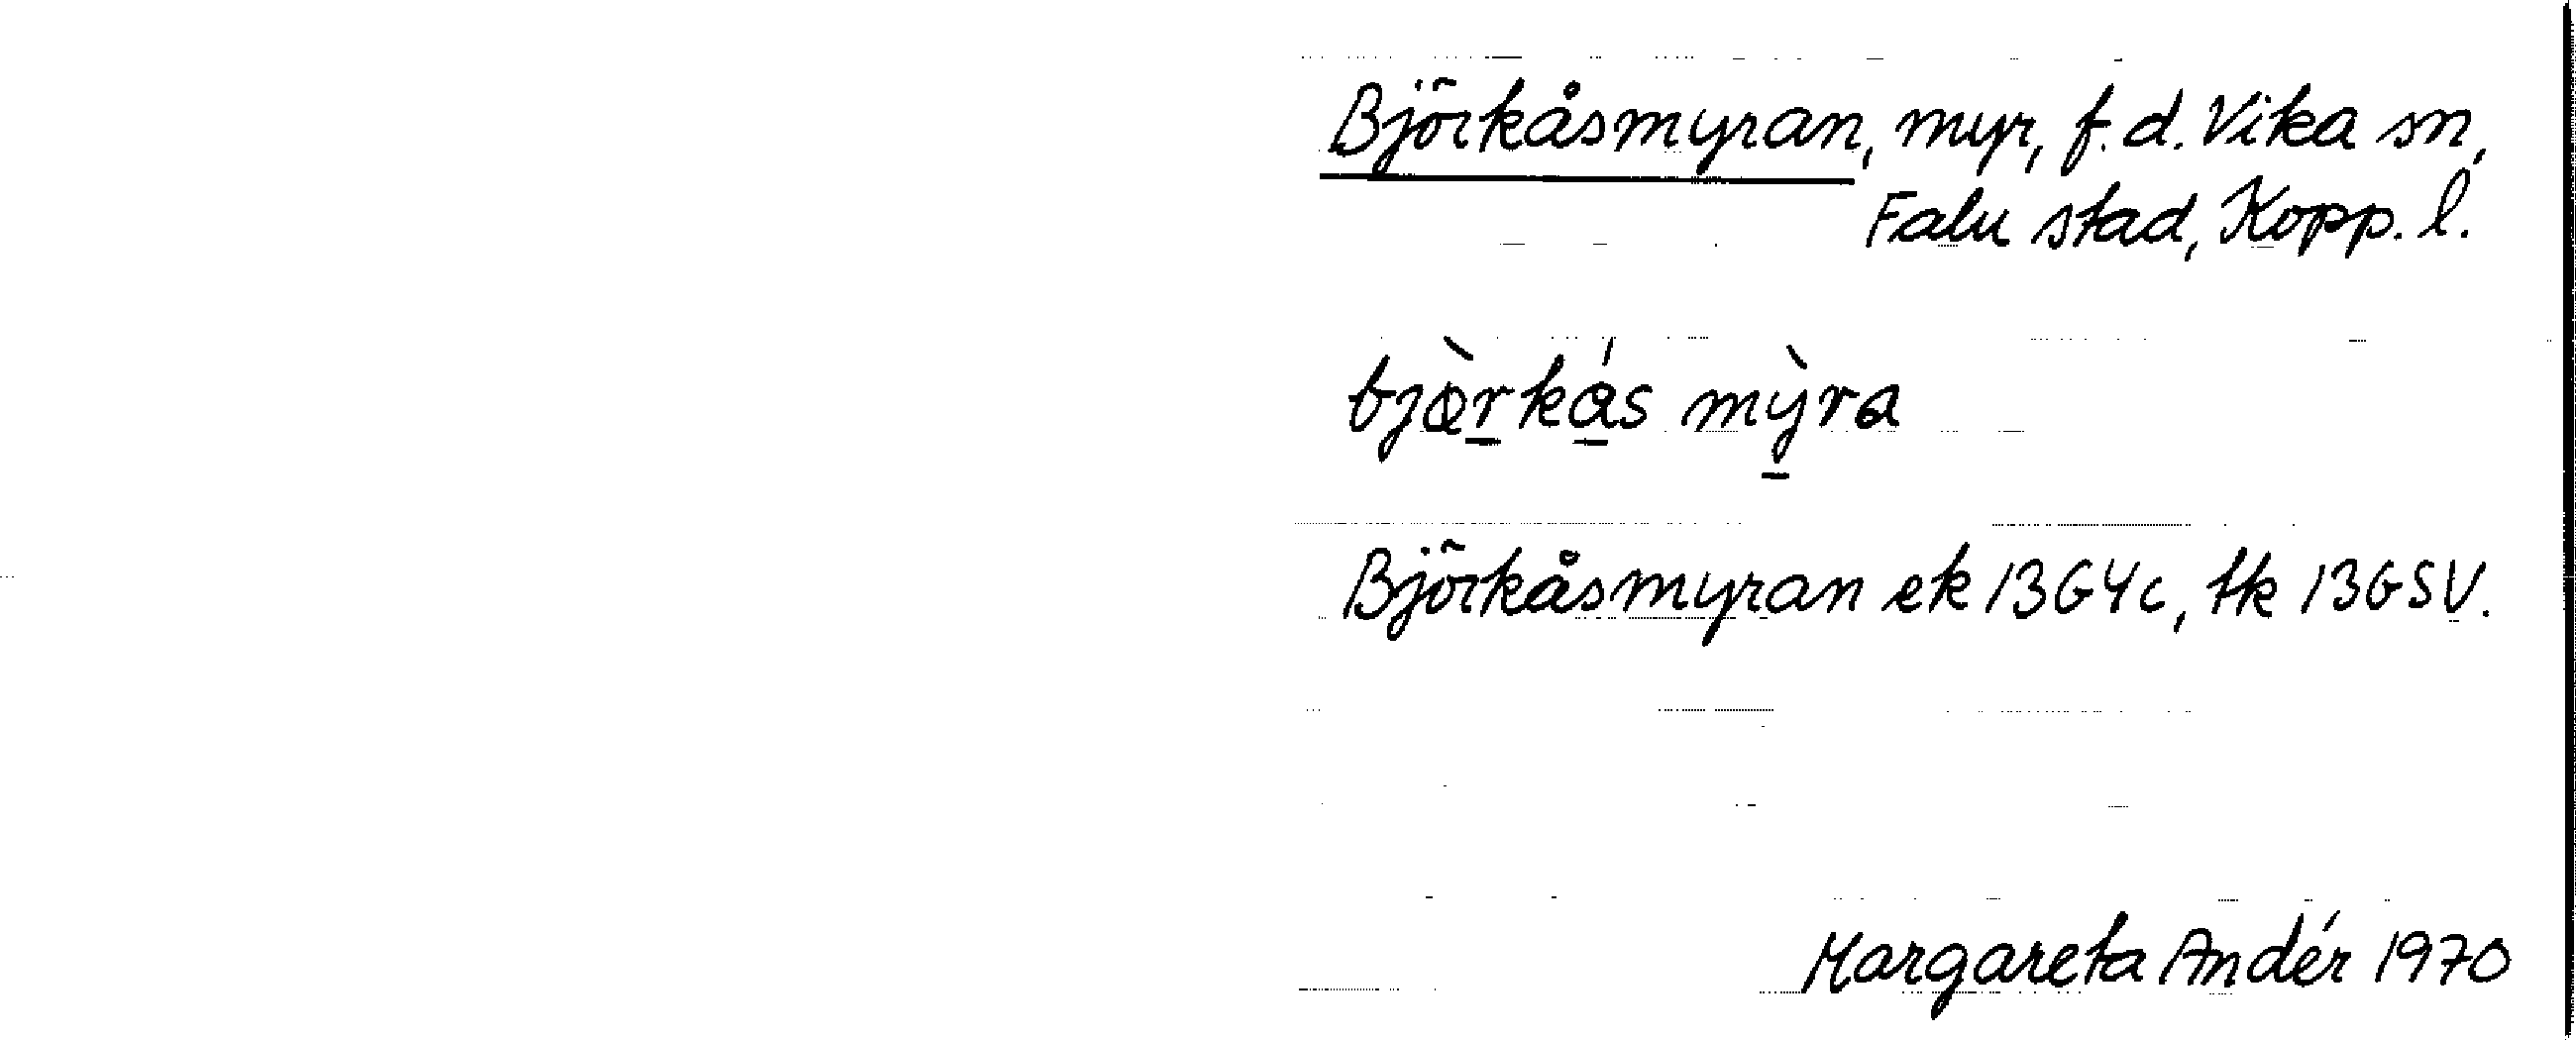 Björkåsmyran, myr, f.d. Vika sn,
Falu stad, Kopp. l.
bjø̀rkås mỳra
Björkåsmyran ek 13G4c, tk 13GSV.
Margareta Andér 1970